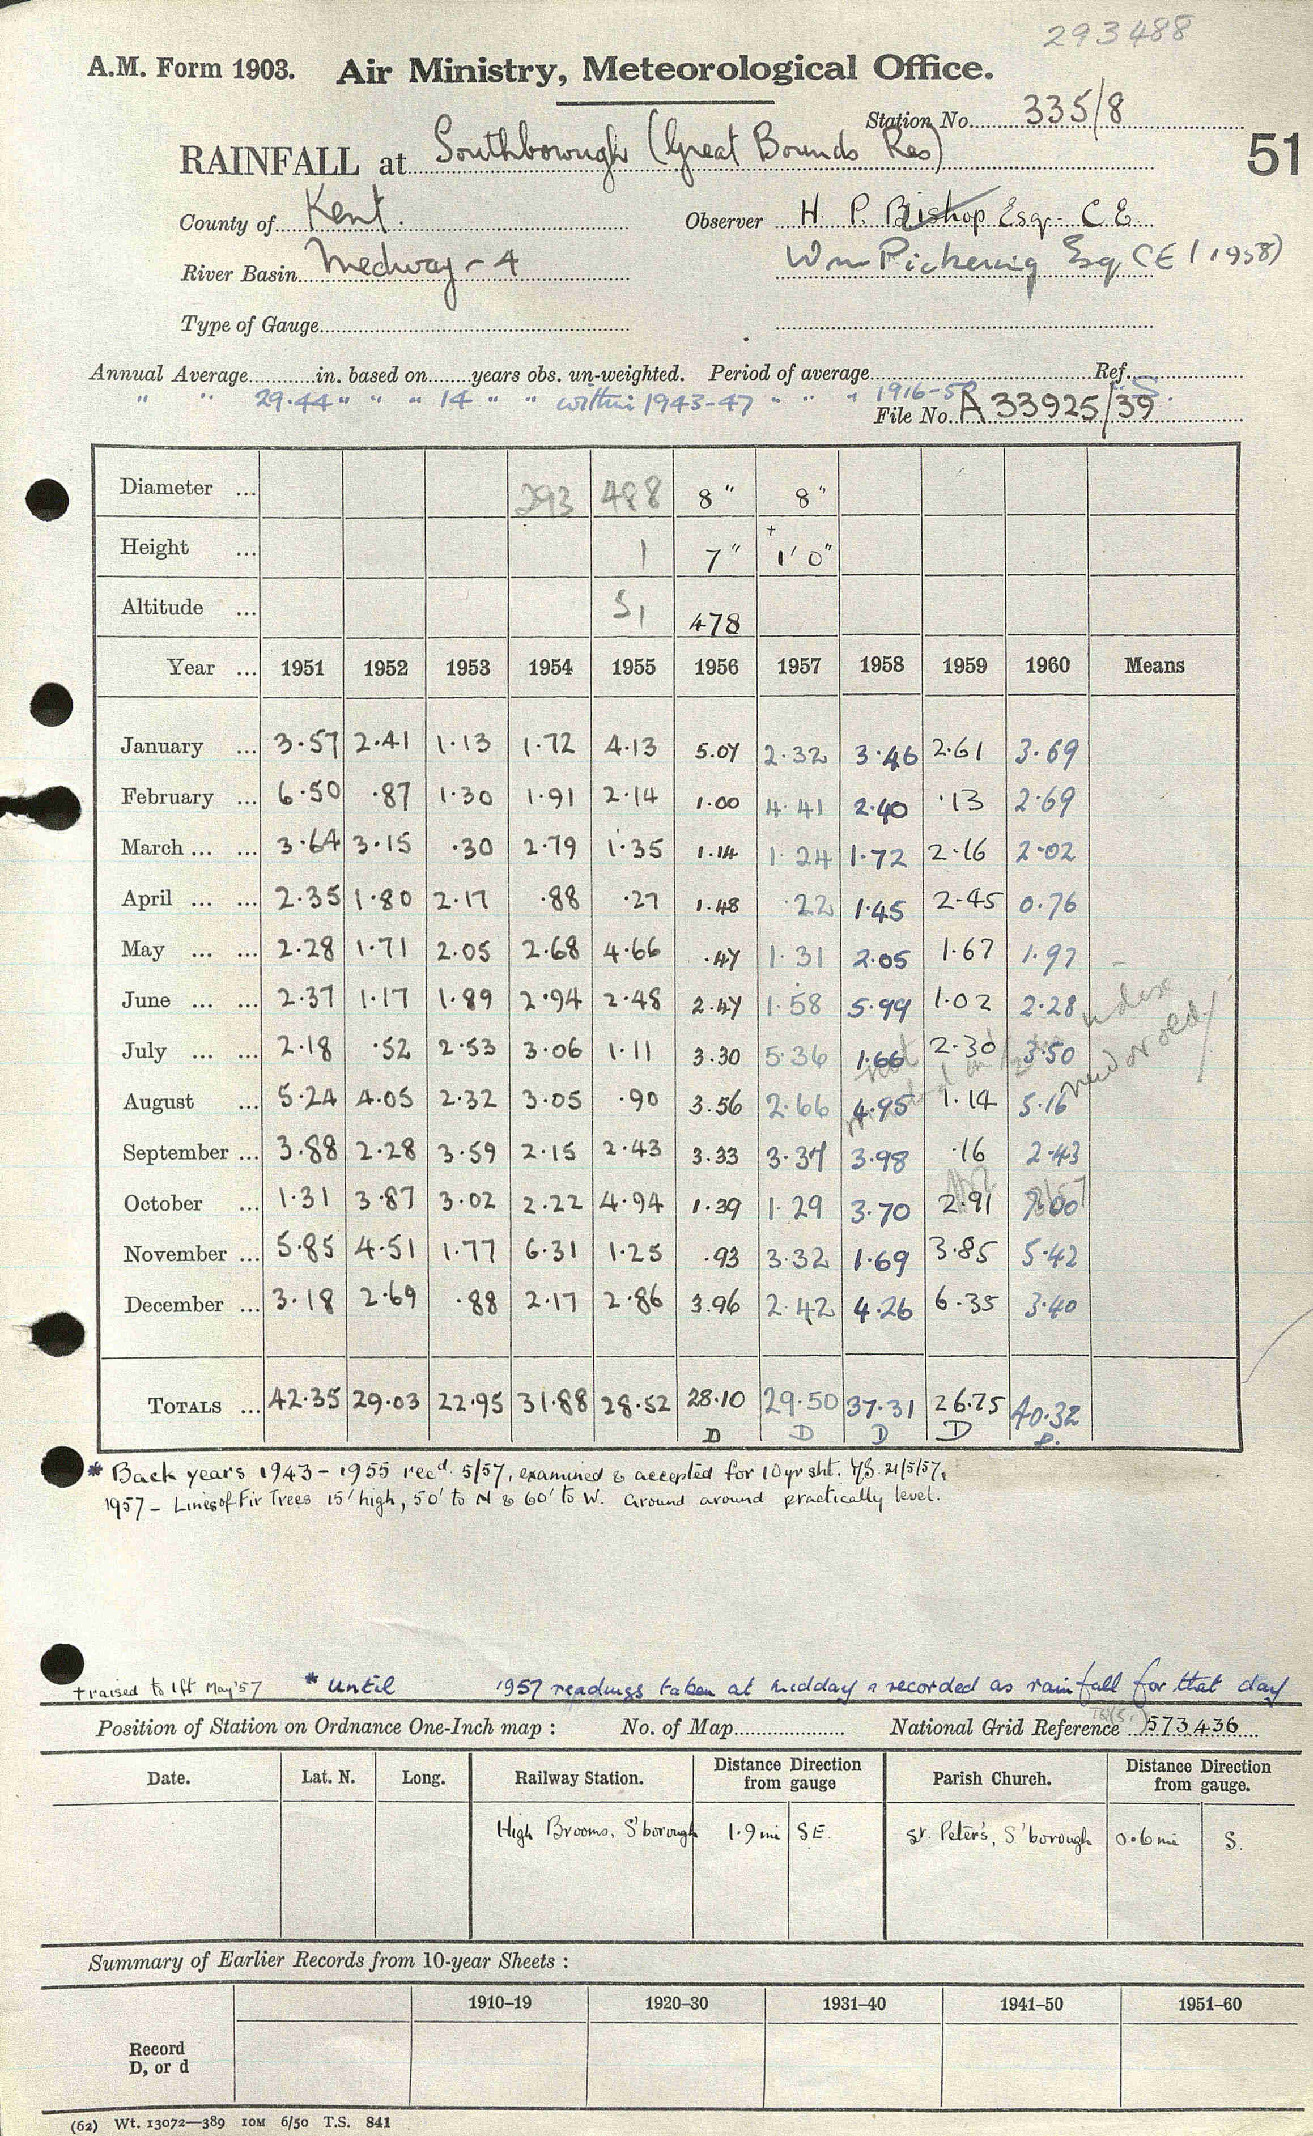 293488
A.M. Form 1903. Air Ministry, Meteorological Office.
Station No. 335/8
RAINFALL at Southborough (Great Bounds Res)
51
County of Kent. Observer H. P. Bishop Esq. C.E.
River Basin Medway - 4 Wm Pickering Esq CE (1958)
Type of Gauge
Annual Average in. based on years obs. un-weighted. Period of average Ref.
" " 29.44 " " " 14 " " within 1943-47 " " " 1916-50 S.
File No. A 33925/39
Diameter ... 293 488 8" 8"
Height ... 1 7" + 1'0"
Altitude ... 51 478
Year ... 1951 1952 1953 1954 1955 1956 1957 1958 1959 1960 Means
January ... 3.57 2.41 1.13 1.72 4.13 5.07 2.32 3.46 2.61 3.69
February ... 6.50 .87 1.30 1.91 2.14 1.00 4.41 2.40 .13 2.69
March ... ... 3.64 3.15 .30 2.79 1.35 1.14 1.24 1.72 2.16 2.02
April ... ... 2.35 1.80 2.17 .88 .27 1.48 .22 1.45 2.45 0.76
May ... ... 2.28 1.71 2.05 2.68 4.66 .47 1.31 2.05 1.67 1.97
June ... ... 2.37 1.17 1.89 2.94 2.48 2.47 1.58 5.99 1.02 2.28
July ... ... 2.18 .52 2.53 3.06 1.11 3.30 5.36 1.66 2.30 3.50
August ... 5.24 4.05 2.32 3.05 .90 3.56 2.66 4.95 1.14 5.16
September ... 3.88 2.28 3.59 2.15 2.43 3.33 3.37 3.98 .16 2.43
October ... 1.31 3.87 3.02 2.22 4.94 1.39 1.29 3.70 2.91 7.00
November ... 5.85 4.51 1.77 6.31 1.25 .93 3.32 1.69 3.85 5.42
December ... 3.18 2.69 .88 2.17 2.86 3.96 2.42 4.26 6.35 3.40
TOTALS ... 42.35 29.03 22.95 31.88 28.52 28.10 29.50 37.31 26.75 40.32
D D D D D.
* Back years 1943-1955 recd. 5/57, examined & accepted for 10yr sht. 21/5/57.
1957 - Lines of Fir Trees 15' high, 50' to N & 60' to W. Ground around practically level.
+ raised to 1ft May '57 * until 1957 readings taken at midday & recorded as rainfall for that day
Position of Station on Ordnance One-Inch map : No. of Map National Grid Reference 573436
Date. Lat. N. Long. Railway Station. Distance Direction from gauge Parish Church. Distance Direction from gauge.
High Brooms, S'borough 1.9 mi SE. St. Peter's, S'borough 0.6 mi S.
Summary of Earlier Records from 10-year Sheets :
1910–19 1920–30 1931–40 1941–50 1951–60
Record
D, or d
(62) Wt. 13072—389 10M 6/50 T.S. 841